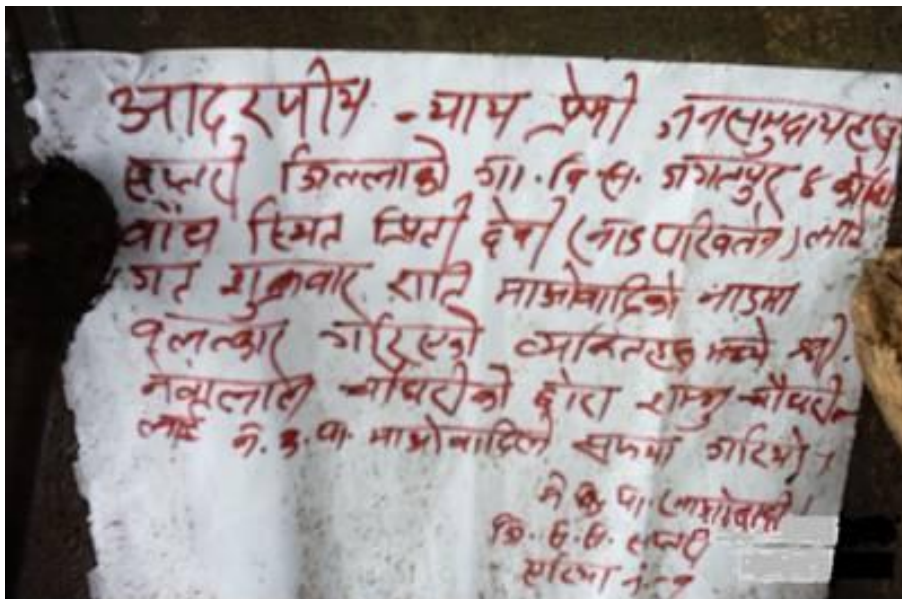 आदरणीय न्याय प्रेमी जनसमुदायहरु
सप्तरी जिल्लाको गा.वि.स. जगतपुर ४ कोशि
वाँध स्थित प्रिती देवी (नाउ परिवर्तन) लाई
गत शुक्रवार राति माओवादिको नाउमा
वलत्कार गरिएको व्यक्तिहरु मध्ये श्री.
चौधरीको छोरा शम्भु चौधरी
लाई ने.क.पा. माओवादिले सफाया गरियो।
ने क पा. (माओवादी)
जि. स. स. सप्तरी
एरिया नं-१